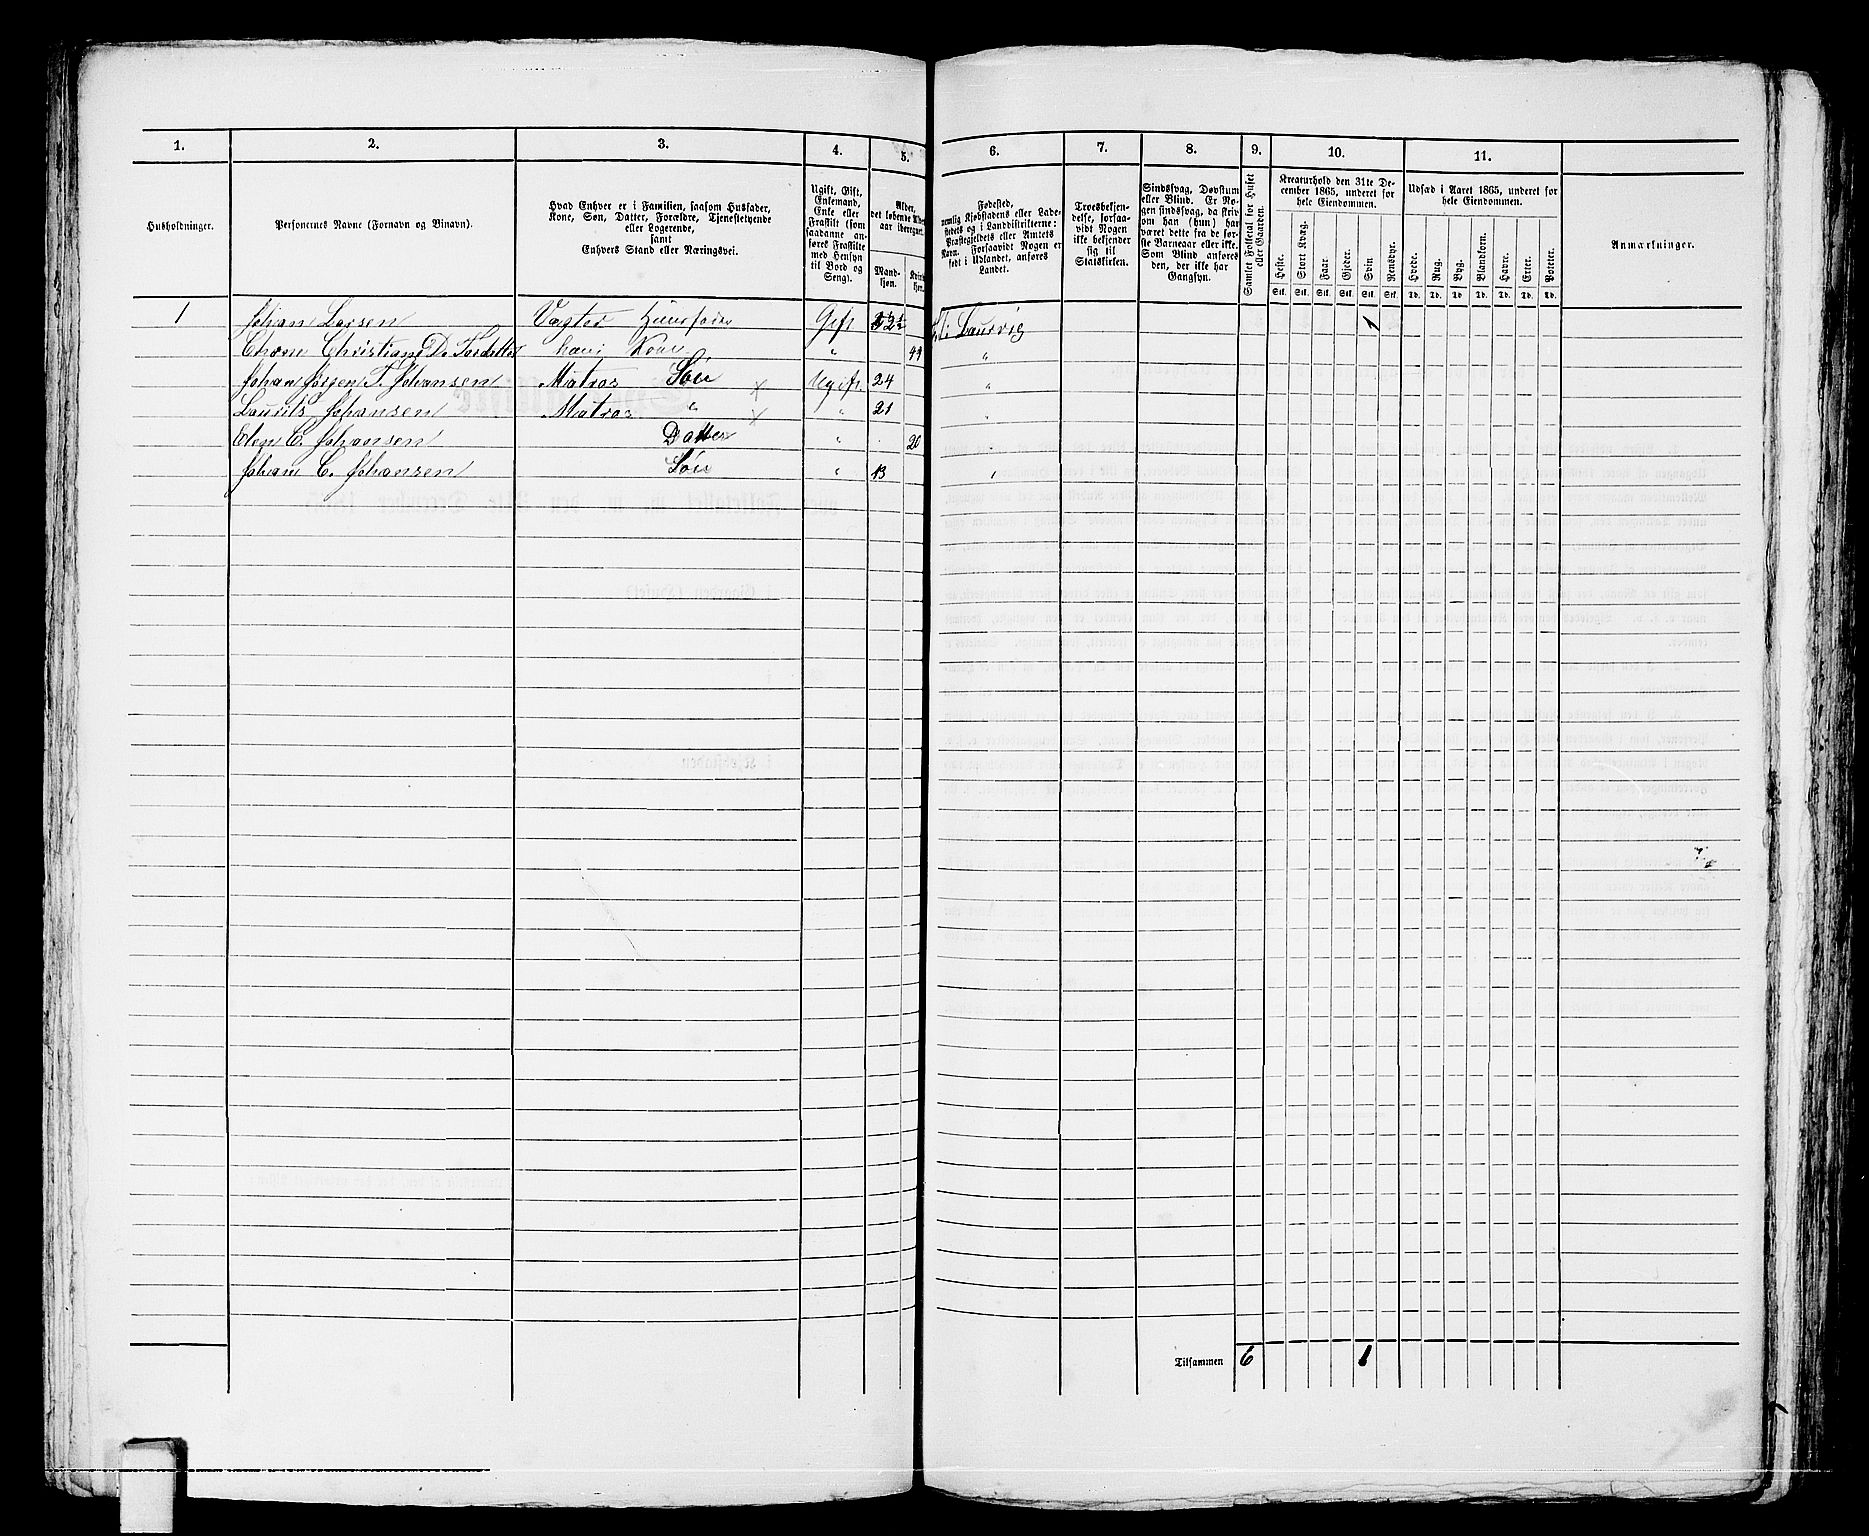 1. 2. 3. 4. 5. 6. 7. 8. 9. 10. 11.
Husholdninger.
Personernes Navne (Fornavn og Binavn).
Hvad Enhver er i Familien, saasom Husfader,
Kone, Søn, Datter, Forældre, Tjenestetyende
eller Logerende,
samt
Enhvers Stand eller Næringsvei.
Ugift, Gift,
Enkemand,
Enke eller
Fraskilt (som
saadanne an-
føres Fraskilte
med Hensyn
til Bord og
Seng).
Alder,
det løbende
aar iberegnet.
Mand-
kjøn.
Kvin
kjøn.
Fødested,
nemlig Kjøbstadens eller Lade-
stedets og i Landdistrikterne:
Præstegjeldets eller Amtets
Navn. Forsaavidt Nogen er
født i Udlandet, anføres
Landet.
Troesbekjen-
delse, forsaa-
vidt Nogen
ikke bekjender
sig til
Statskirken.
Sindssvag, Døvstum
eller Blind. Er No-
gen sindssvag, da skriv
om han (hun) har
været dette fra de før-
ste Barneaar eller ikke.
Som Blind anføres
den, der ikke har
Gangsyn.
Samlet Folketal for Huset
eller Gaarden.
Kreaturhold den 31te De-
cember 1865, underet for
hele Eiendommen.
Heste. Stort Kvæg. Faar. Gjeder. Svin. Rensdyr.
Stk. Stk. Stk. Stk. Stk. Stk.
Udsæd i Aaret 1865, underet for
hele Eiendommen.
Hvede. Rug. Byg. Blandkorn. Havre. Erter. Poteter.
Td. Td. Td. Td. Td. Td. Td.
Anmærkninger.
1 Johan Larsen Vægter Huusfader Gift Laurvig 1
Christiane D. hans Kone " 44 "
Johan Jørgen T. Johansen Matros Søn × Ugift 24 "
Laurits Johansen Matros " × " 21 "
Elen C. Johansen Datter " 20 "
Johan C. Johansen Søn " 13 "
Tilsammen 6 1